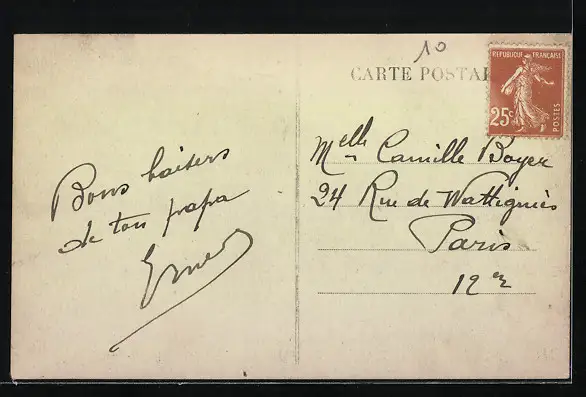 10
CARTE POSTAL
REPUBLIQUE FRANÇAISE
25c
POSTES
Bons baisers
de ton papa
Melle Camille Boyer
24 Rue de Wattignies
Paris
12e